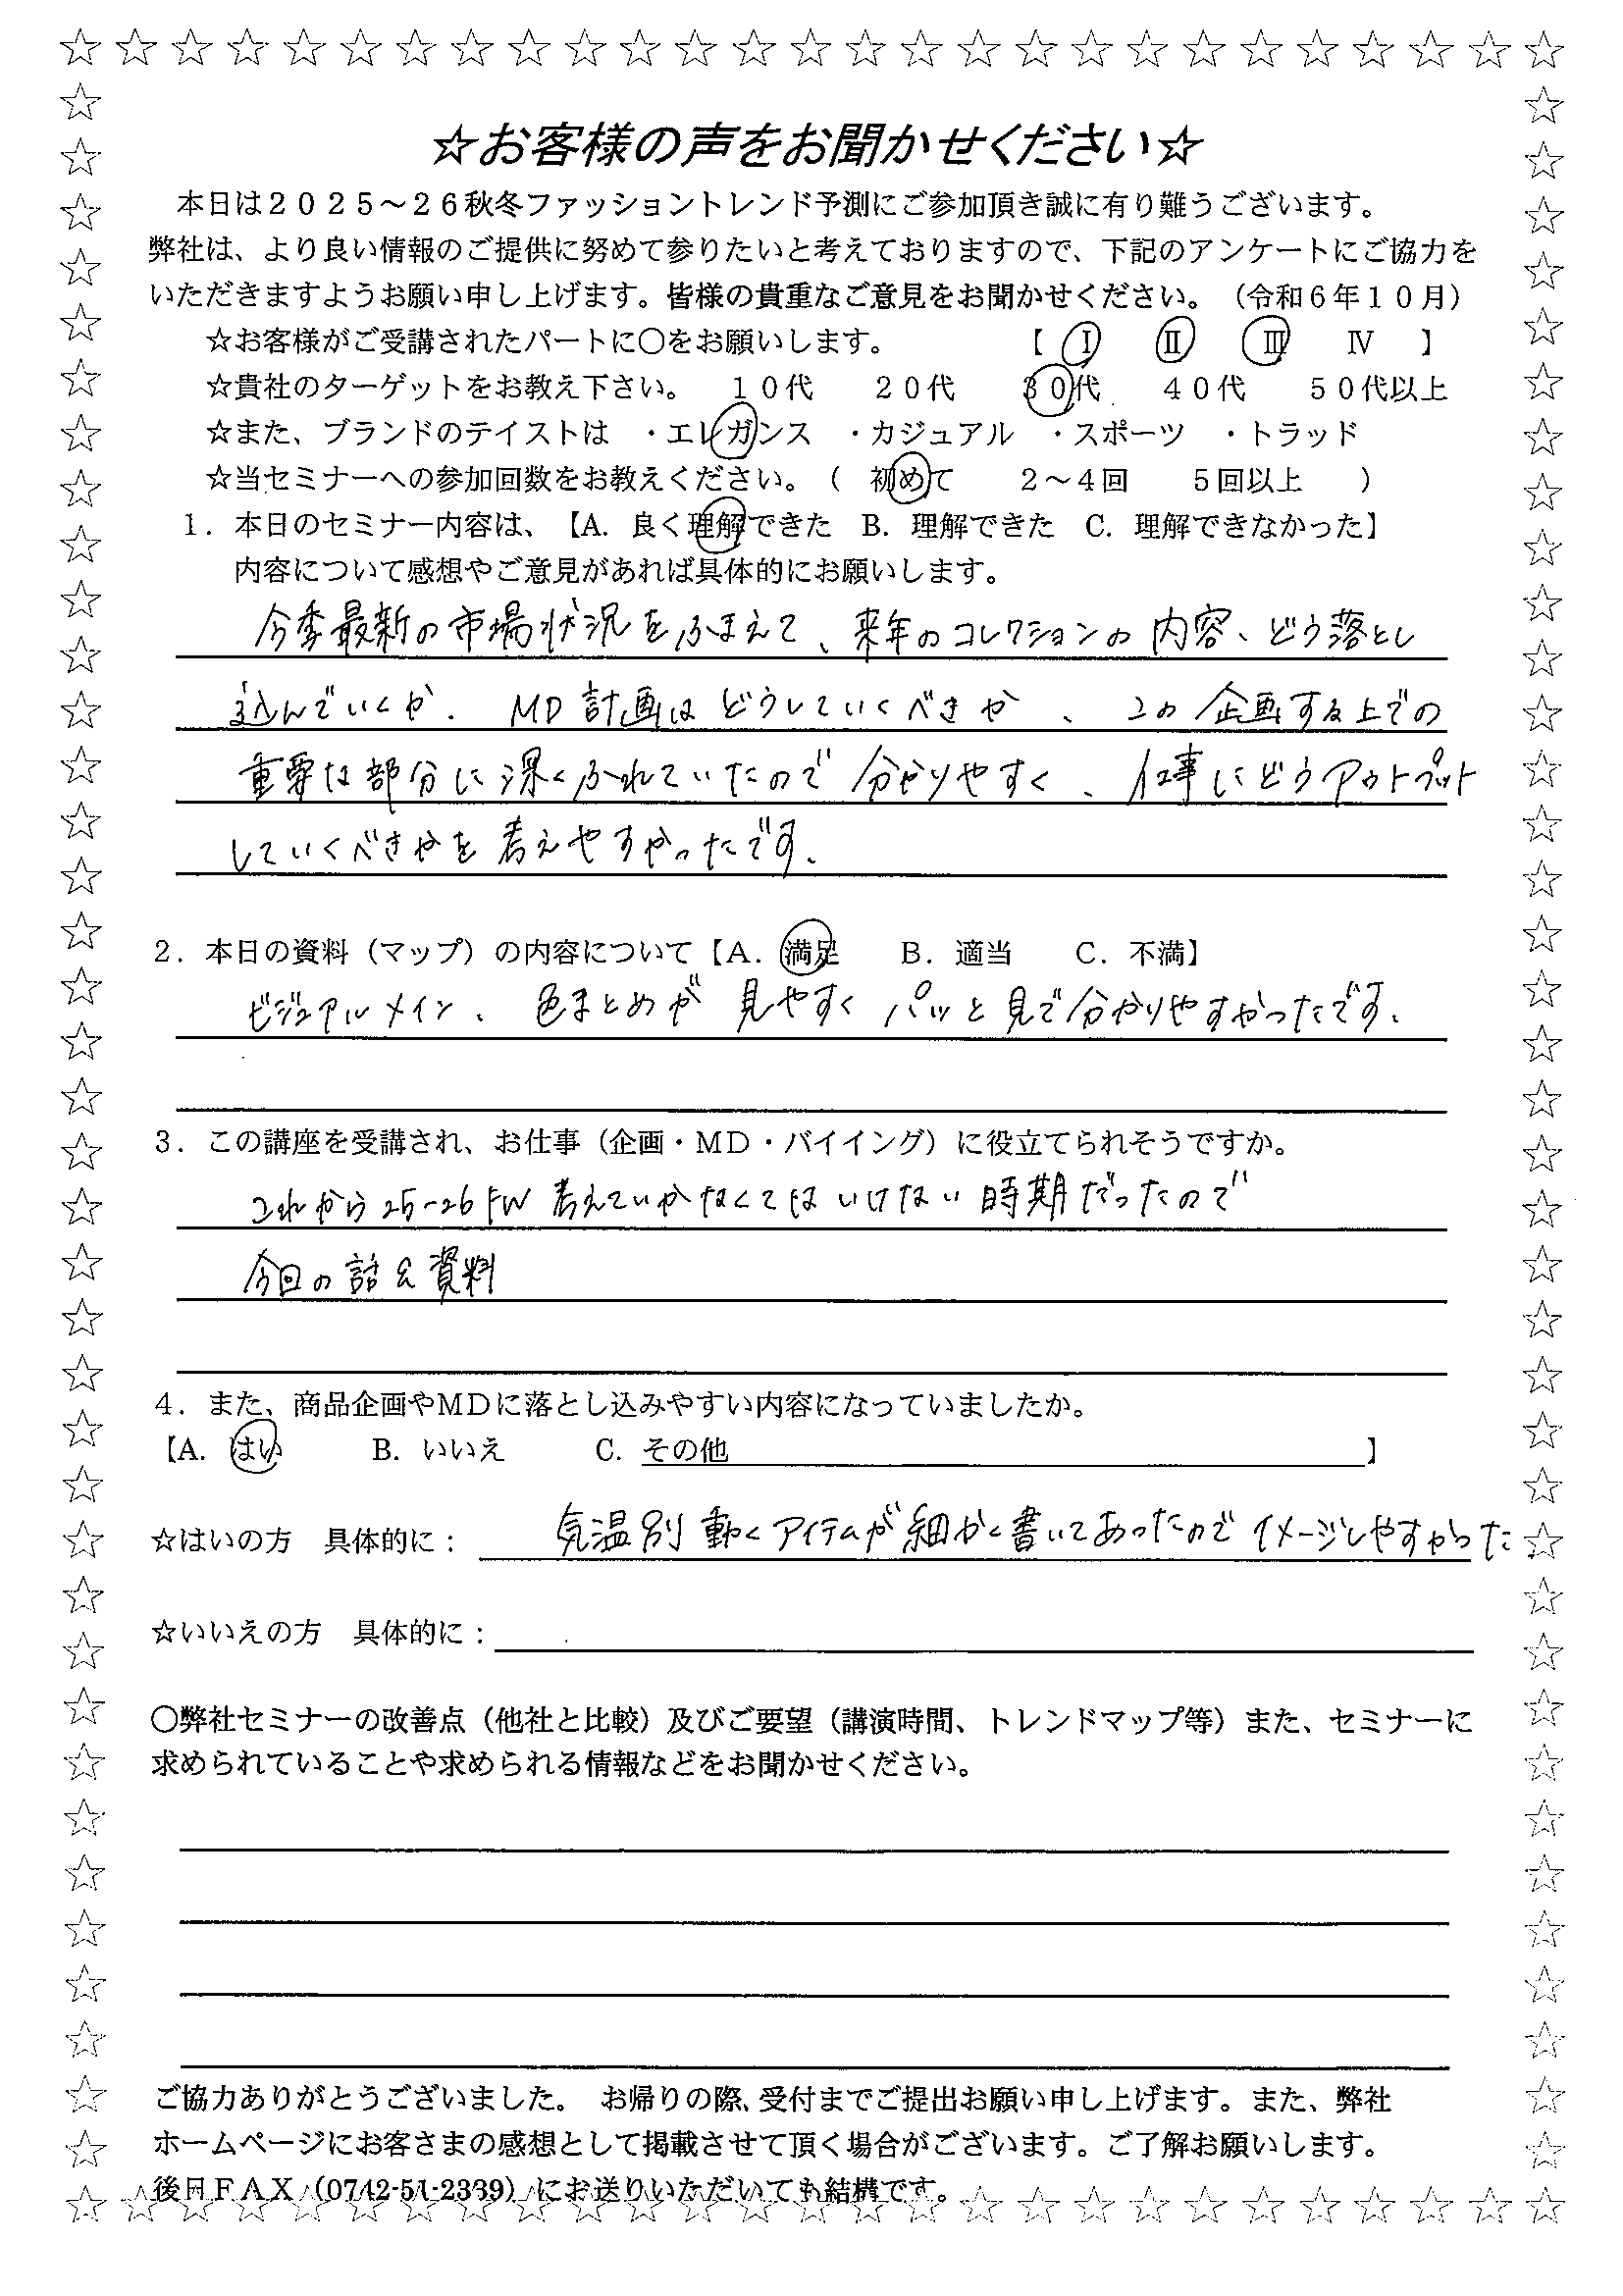 ☆お客様の声をお聞かせください☆
本日は２０２５～２６秋冬ファッショントレンド予測にご参加頂き誠に有り難うございます。
弊社は、より良い情報のご提供に努めて参りたいと考えておりますので、下記のアンケートにご協力を
いただきますようお願い申し上げます。皆様の貴重なご意見をお聞かせください。（令和６年１０月）
☆お客様がご受講されたパートに〇をお願いします。　【　Ⅰ　Ⅱ　Ⅲ　Ⅳ　】
☆貴社のターゲットをお教え下さい。　１０代　２０代　３０代　４０代　５０代以上
☆また、ブランドのテイストは　・エレガンス　・カジュアル　・スポーツ　・トラッド
☆当セミナーへの参加回数をお教えください。（　初めて　２～４回　５回以上　）
１．本日のセミナー内容は、【A. 良く理解できた　B. 理解できた　C. 理解できなかった】
内容について感想やご意見があれば具体的にお願いします。
今季最新の市場状況をふまえて、来年のコレクションの内容、どう落とし
込んでいくか、MD計画はどうしていくべきか、この企画する上での
重要な部分に深くふれていたので分かりやすく、仕事にどうアウトプット
していくべきかを考えやすかったです。
２．本日の資料（マップ）の内容について【A. 満足　B. 適当　C. 不満】
ビジュアルメイン、色まとめが見やすくパッと見で分かりやすかったです。
３．この講座を受講され、お仕事（企画・ＭＤ・バイイング）に役立てられそうですか。
これから25-26FW考えていかなくてはいけない時期だったので
今回の話&資料
４．また、商品企画やＭＤに落とし込みやすい内容になっていましたか。
【A. はい　B. いいえ　C. その他　】
☆はいの方　具体的に：気温別動くアイテムが細かく書いてあったのでイメージしやすかった。
☆いいえの方　具体的に：
〇弊社セミナーの改善点（他社と比較）及びご要望（講演時間、トレンドマップ等）また、セミナーに
求められていることや求められる情報などをお聞かせください。
ご協力ありがとうございました。　お帰りの際、受付までご提出お願い申し上げます。また、弊社
ホームページにお客さまの感想として掲載させて頂く場合がございます。ご了解お願いします。
後日ＦＡＸ（0742-51-2339）にお送りいただいても結構です。